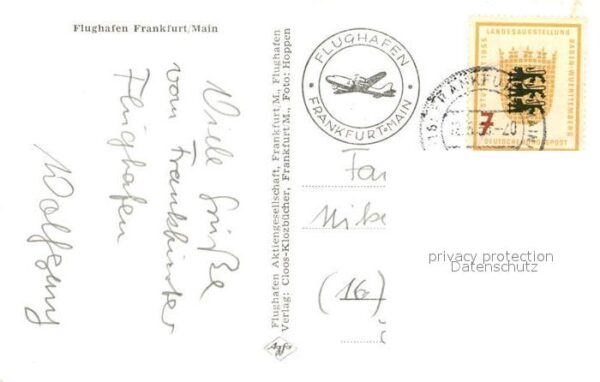 Flughafen Frankfurt/Main
Viele Grüße
vom Frankfurter
Flughafen
Wolfgang
Flughafen Aktiengesellschaft, Frankfurt/M., Flughafen
Verlag: Cloos-Klozbücher, Frankfurt M., Foto: Hoppen
Agfa
FLUGHAFEN
FRANKFURT-MAIN
LANDESAUSSTELLUNG
BADEN-WÜRTTEMBERG
STUTTGART 1955
7
DEUTSCHE BUNDESPOST
FRANKFU
-20
Fa
(16)
privacy protection
Datenschutz